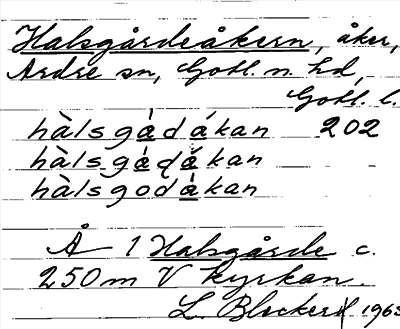 Halsgårdeåkern, åker,
Ardre sn, Gotl. n. hd,
Gotl. l.
hàlsgá̱dá̱kan 202
hàlsgá̱dá̱kan
hàlsgodá̱kan
Å 1 Halsgårde c.
250 m V kyrkan.
L.